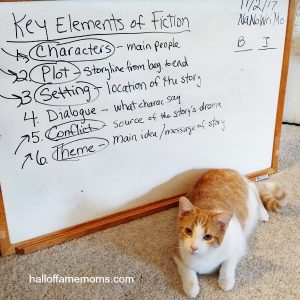 Key Elements of Fiction
11/2/17
NaNoWriMo
B I
1. Characters - main people
2. Plot - Storyline from beg to end
3. Setting - location of the story
4. Dialogue - what charac say
5. Conflict - source of the story's drama
6. Theme - main idea / message of story
halloffamemoms.com